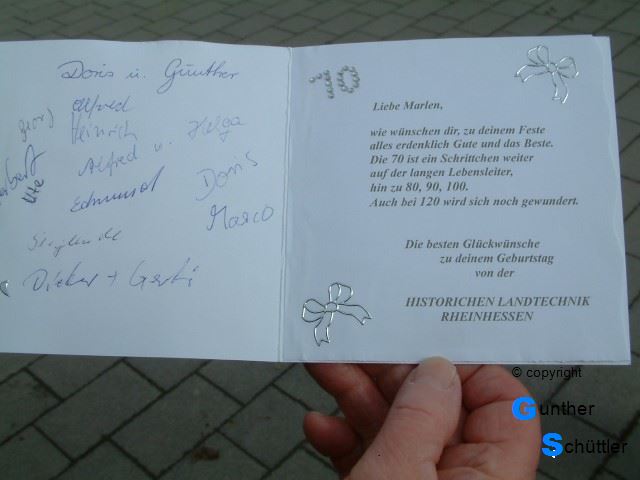 Doris u. Günther
Alfred
Heinrich
Alfred u. Helga
Ute
Edmund Doris
Marco
Dieter + Gerti
70
Liebe Marlen,
wie wünschen dir, zu deinem Feste
alles erdenklich Gute und das Beste.
Die 70 ist ein Schrittchen weiter
auf der langen Lebensleiter,
hin zu 80, 90, 100.
Auch bei 120 wird sich noch gewundert.
Die besten Glückwünsche
zu deinem Geburtstag
von der
HISTORICHEN LANDTECHNIK
RHEINHESSEN
© copyright
Gunther
Schüttler